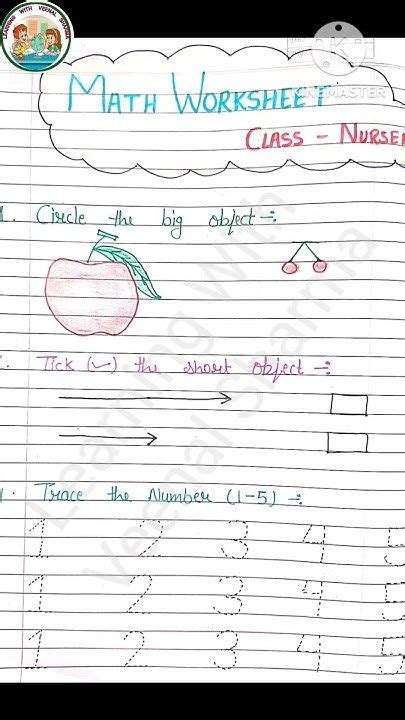 LEARNING WITH VEENAL SHARMA
KINEMASTER
MATH WORKSHEET
CLASS - NURSE
1. Circle the big object -:
Tick (✓) the short object -:
Trace the Number (1-5) -:
1 2 3 4 5
1 2 3 4 5
1 2 3 4 5
Learning With
Veenal Sharma